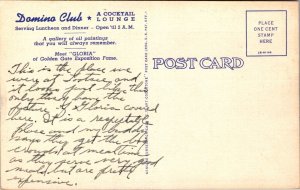 Domino Club ★ A COCKTAIL LOUNGE
Serving Luncheon and Dinner - Open 'til 2 A.M.
A gallery of oil paintings
that you will always remember.
Meet "GLORIA"
of Golden Gate Exposition Fame.
POST CARD
PLACE
ONE CENT
STAMP
HERE
This is the place we
were at Tuesday, and
it looks just like this
only they hung the
picture of Gloria
here. It is a respectable
place and my buddy
says they get the best
crowds at meal time
as they serve very good
meals but are pretty
expensive.